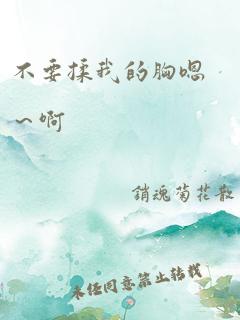 不要揉我的胸嗯
~啊
銷魂菊花散
未经同意禁止转载